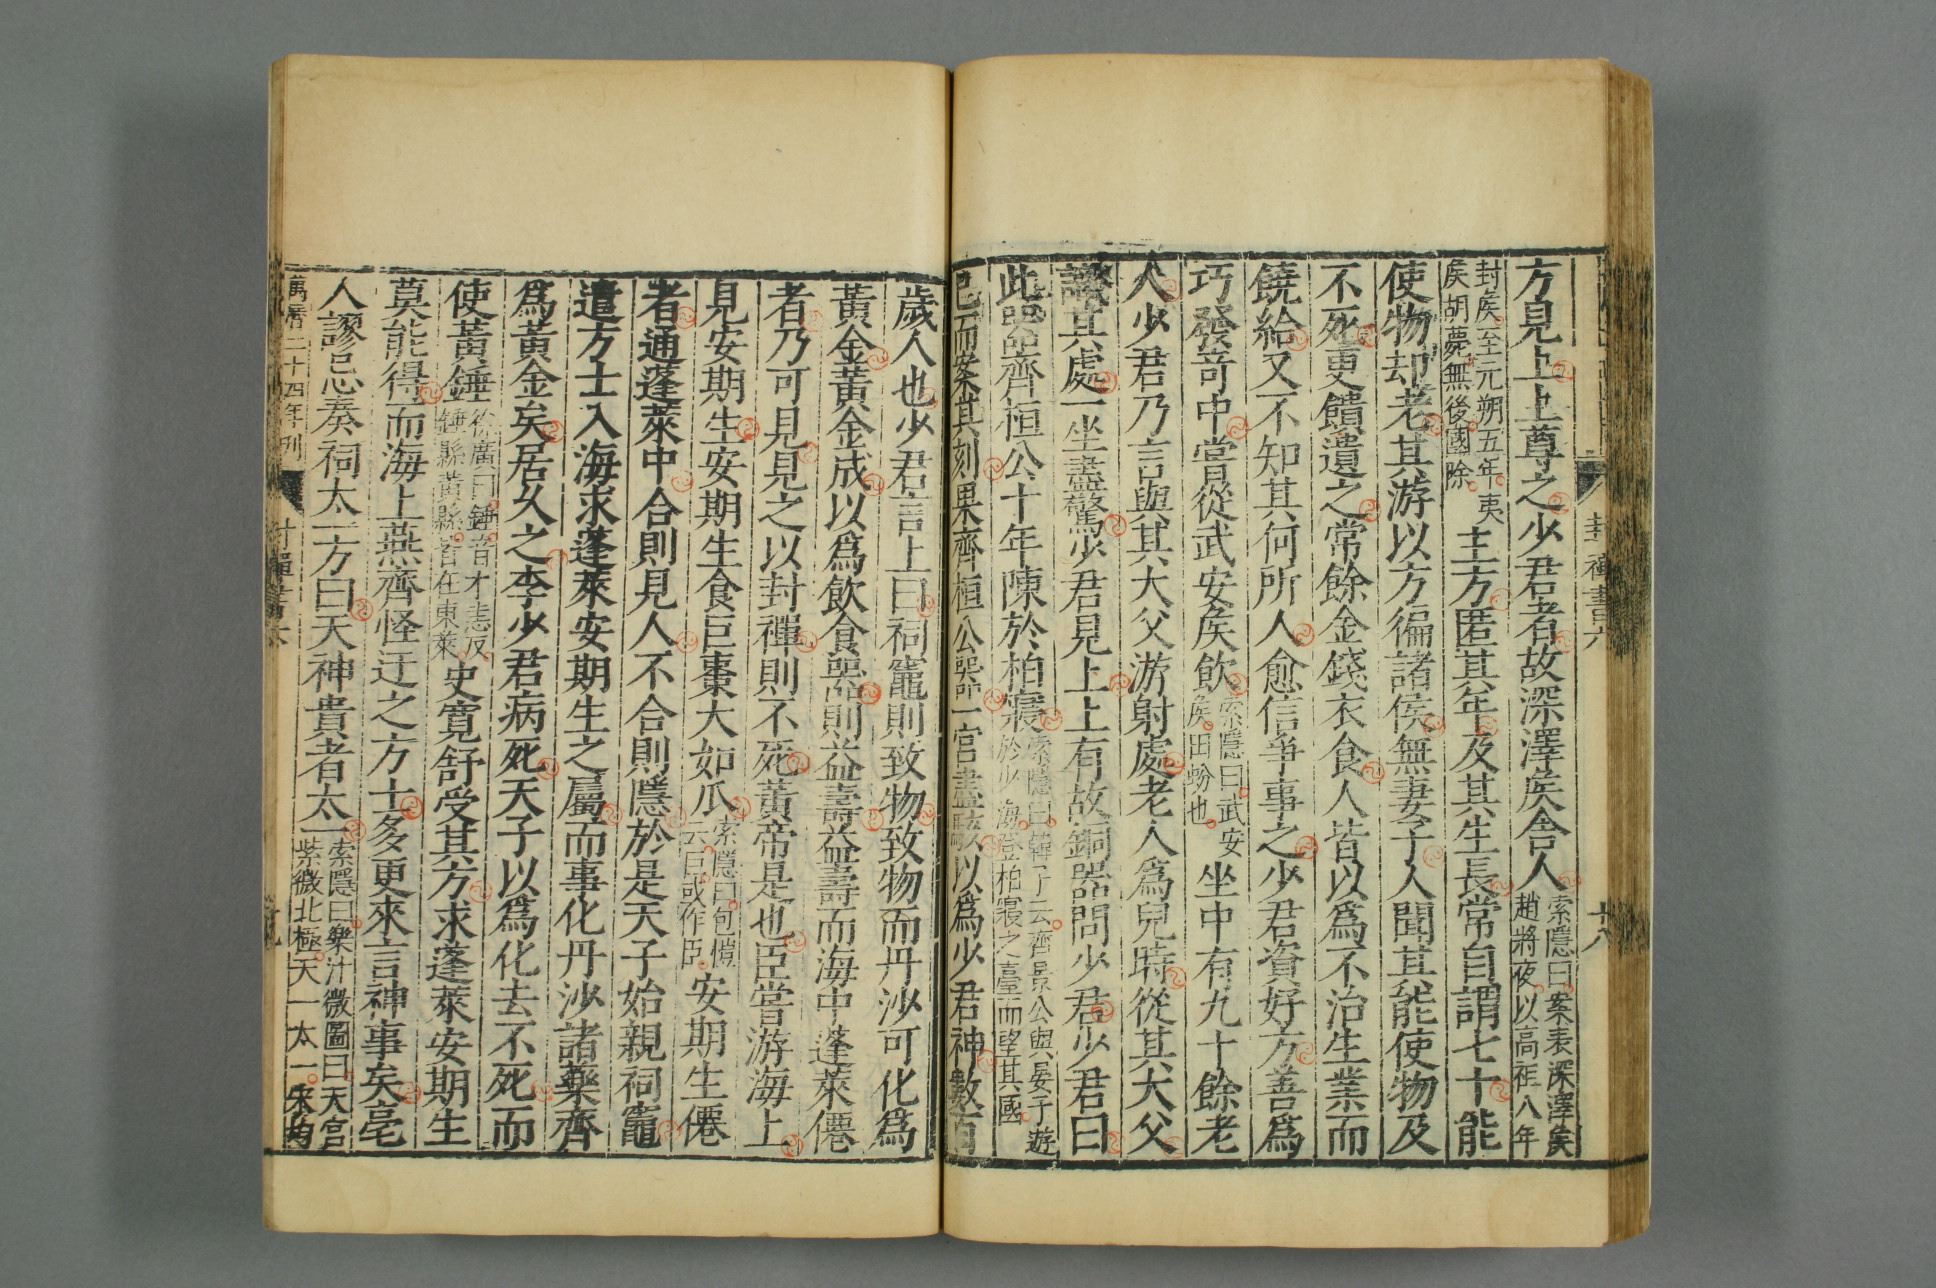 封禪書六
十八
方見上上尊之少君者故深澤矦舍人索隱曰案表深澤矦趙將夜以高祖八年
封矦至元朔五年夷矦胡薨無後國除主方匿其年及其生長常自謂七十能
使物却老其游以方徧諸侯無妻子人聞其能使物及
不死更饋遺之常餘金錢衣食人皆以爲不治生業而
饒給又不知其何所人愈信爭事之少君資好方善爲
巧發竒中嘗從武安矦飲索隱曰武安矦田蚡也坐中有九十餘老
人少君乃言與其大父游射處老人爲兒時從其大父
識其處一坐盡驚少君見上上有故銅器問少君少君曰
此器齊桓公十年陳於柏寢索隱曰韓子云齊景公與晏子遊於少海登柏寢之臺而望其國
已而案其刻果齊桓公器一宫盡駭以爲少君神數百
歲人也少君言上曰祠竈則致物致物而丹沙可化爲
黃金黃金成以爲飲食器則益壽益壽而海中蓬萊僊
者乃可見見之以封禪則不死黃帝是也臣嘗游海上
見安期生安期生食巨棗大如瓜索隱曰包愷云巨或作臣安期生僊
者通蓬萊中合則見人不合則隱於是天子始親祠竈
遣方士入海求蓬萊安期生之屬而事化丹沙諸藥齊
爲黃金矣居久之李少君病死天子以爲化去不死而
使黃錘徐廣曰錘音才恚反錘縣黃縣皆在東萊史寬舒受其方求蓬萊安期生
莫能得而海上燕齊怪迂之方士多更來言神事矣亳
人謬忌奏祠太一方曰天神貴者太一索隱曰樂汁微圖曰天宫紫微北極天一太一宋均
萬曆二十四年刊
封禪書六
十九